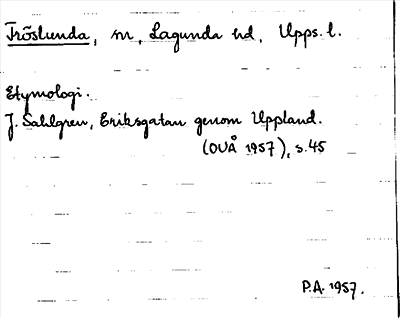 Fröslunda, m, Lagunda hd, Upps. l.
Etymologi.
J. Sahlgren, Eriksgatan genom Uppland.
(OUÅ 1957), s. 45
P.A. 1957.